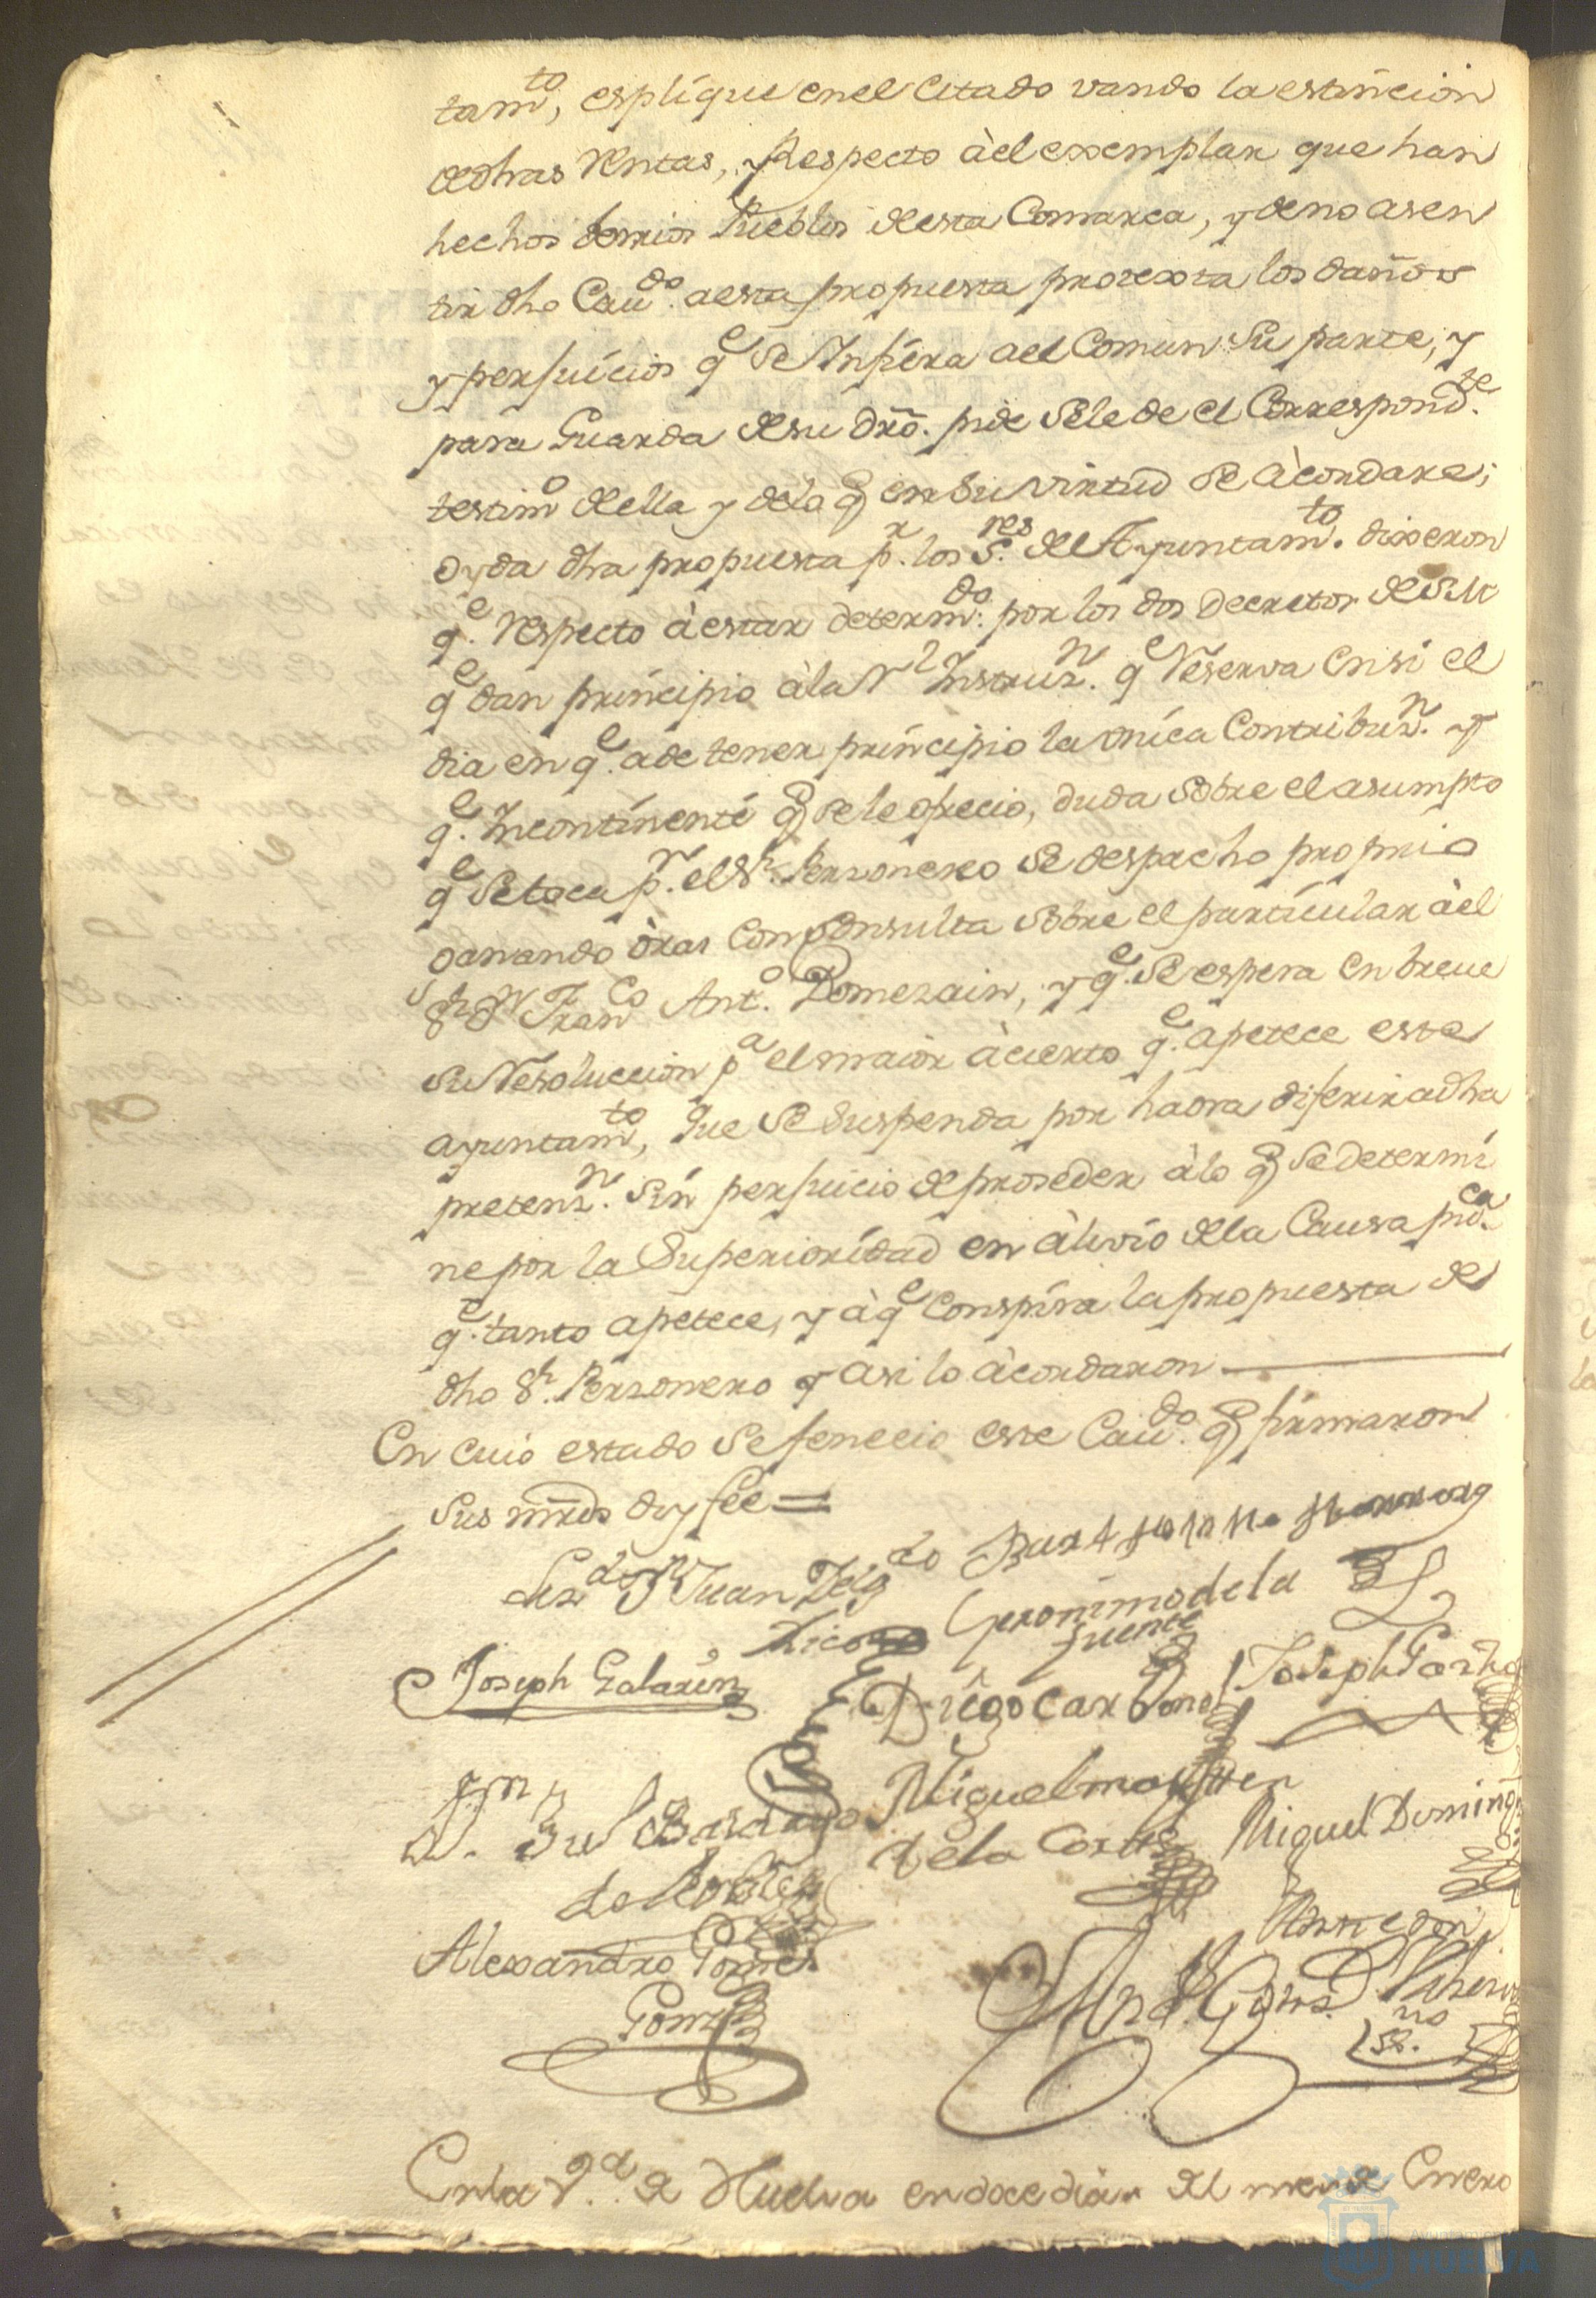 tamto, esplique en el Citado vando la estincion
de dhas Rentas, y Respecto àel exemplar que han
hechos barios Pueblos de esta Comarca, y de no asen
tir dho Caudo. a esta propuesta protexta los daños
y perjuicios qe se Infiera a el Comun Su parte, y
para Guarda de su dro. pide Se le de el Correspondte.
testimo de ella y de lo q en Su virtud Se àcordare;
oyda dha propuesta pr. los Sres. del Ayuntamto. dixeron
qe. Respecto à estar determdo. por los dos Decretos de S.M
qe dan principio àla Rl Instruzn. qe Reserva En si el
dia en qe. a de tener principio la vnica Contribuzn. y
qe. Incontinenti q se le ofrecio, duda Sobre el asumpto
qe Se toca pr. el Sr. Personero Se despacho proprio
ganando òras Con Consulta Sobre el particular àel
Sr Dn Franco Anto. Domezain, y qe. Se espera En breue
Su Resoluccion pa el maior àcierto qe. apetece este
ayuntamto, Que Se Suspenda por haora diferir a dha
pretenzn. Sin perjuicio de proseder àlo q Se determi
ne por la Superioridad en àlivio de la Causa puca.
qe. tanto apetece, y àqe Conspira la propuesta de
dho Sr. Personero y asi lo àcordaron
En cuio estado Se fenecio este Caudo. q firmaron
Sus mrds doy fee =
Lizdo Dn Juan Delgdo
Geronimo de la
fuente
Joseph Galarin
Diego Carbonel
Joseph Garzia
Miguel martin
de la Corte
Miguel Doming
Alexandro Gomez
Gonz
Enla Va. de Huelva en doce dias del mes de Enero
HUELVA